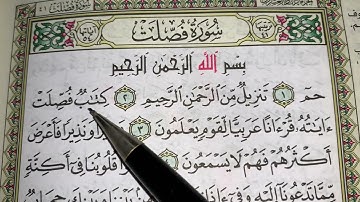 سُورَةُ فُصِّلَتْ
بِسْمِ اللَّهِ الرَّحْمَٰنِ الرَّحِيمِ
حمٓ ١ تَنزِيلٌ مِّنَ الرَّحْمَٰنِ الرَّحِيمِ ٢ كِتَٰبٌ فُصِّلَتْ
ءَايَٰتُهُۥ قُرْءَانًا عَرَبِيًّا لِّقَوْمٍ يَعْلَمُونَ ٣ وَنَذِيرًا فَأَعْرَضَ
أَكْثَرُهُمْ فَهُمْ لَا يَسْمَعُونَ قُلُوبُنَا فِىٓ أَكِنَّةٍ
مِّمَّا تَدْعُونَآ إِلَيْهِ وَفِىٓ